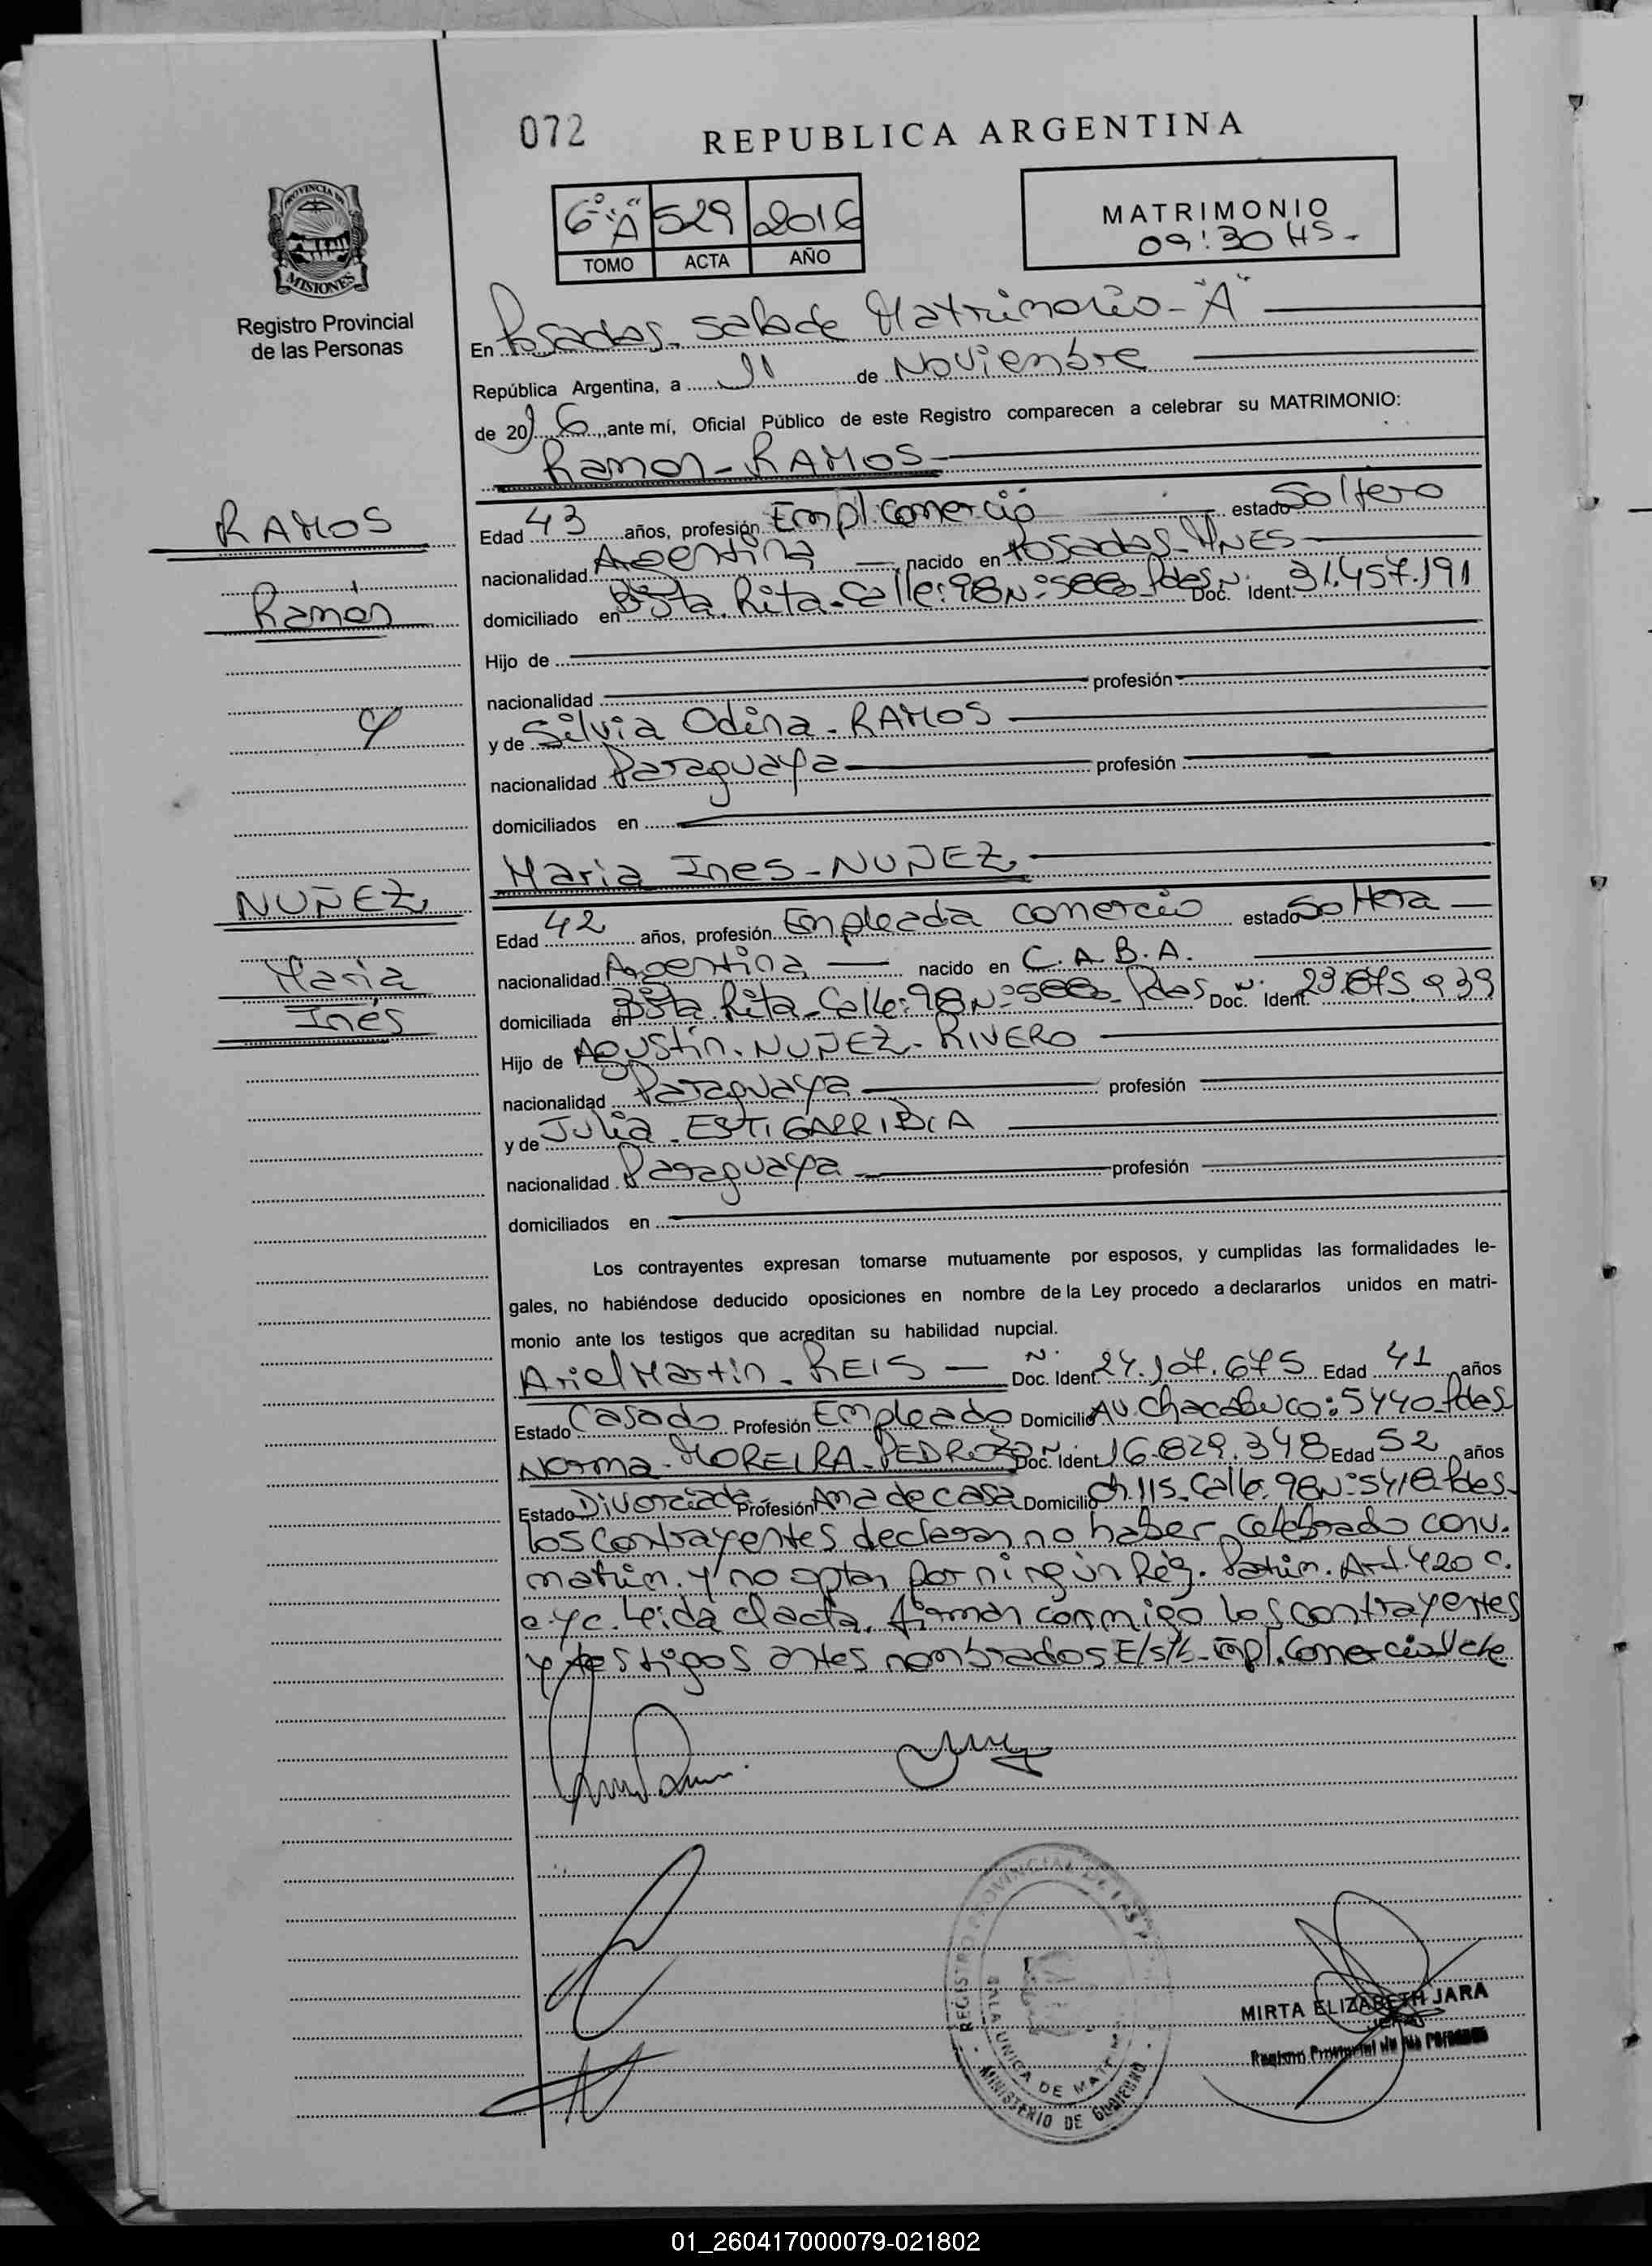 072
REPUBLICA ARGENTINA
PROVINCIA DE
MISIONES
Registro Provincial
de las Personas
6° "A" 529 2016
TOMO ACTA AÑO
MATRIMONIO
09:30 HS-
En Posadas. Sala de Matrimonio - "A"
República Argentina, a 11 de Noviembre
de 2016, ante mí, Oficial Público de este Registro comparecen a celebrar su MATRIMONIO:
Ramon - RAMOS
RAMOS
Ramón
Edad 43 años, profesión Empl. Comercio estado Soltero
nacionalidad Argentina nacido en Posadas - MNES
domiciliado en B° Sta. Rita. Calle: 98 N° 5880 Pdas Doc. N° Ident. 31.457.191
Hijo de
nacionalidad profesión
y
y de Silvia Odina - RAMOS
nacionalidad Paraguaya profesión
domiciliados en
Maria Ines - NUÑEZ
NUÑEZ
Maria
Inés
Edad 42 años, profesión Empleada Comercio estado Soltera
nacionalidad Argentina nacido en C.A.B.A.
domiciliada en B° Sta. Rita - Calle: 98 N° 5880 - Pdas Doc. N° Ident.
Hijo de Agustín. NUÑEZ - RIVERO
nacionalidad Paraguaya profesión
y de Julia - ESTIGARRIBIA
nacionalidad Paraguaya profesión
domiciliados en
Los contrayentes expresan tomarse mutuamente por esposos, y cumplidas las formalidades le-
gales, no habiéndose deducido oposiciones en nombre de la Ley procedo a declararlos unidos en matri-
monio ante los testigos que acreditan su habilidad nupcial.
Ariel Martin - REIS Doc. N° Ident. 24.107.675 Edad 41 años
Estado Casado Profesión Empleado Domicilio AV. Chacabuco: 5440 - Pdas
Norma - MOREIRA - PEDROZO Doc. N° Ident. 16.829.348 Edad 52 años
Estado Divorciada Profesión Ama de casa Domicilio Ch. 115 - Calle. 98 N° 5418 - Pdas.
los contrayentes declaran no haber celebrado conv.
matrim. y no optan por ningún Rég. Patrim. Art. 420 C.
e. y c. Leída el acta, firman conmigo los contrayentes
y testigos antes nombrados E/s/b - Empl. Comercio Vale
REGISTRO PROVINCIAL DE LAS
MINISTERIO DE GOBIERNO
MIRTA ELIZABETH JARA
JEFA
Registro Provincial de las Personas
01_260417000079-021802